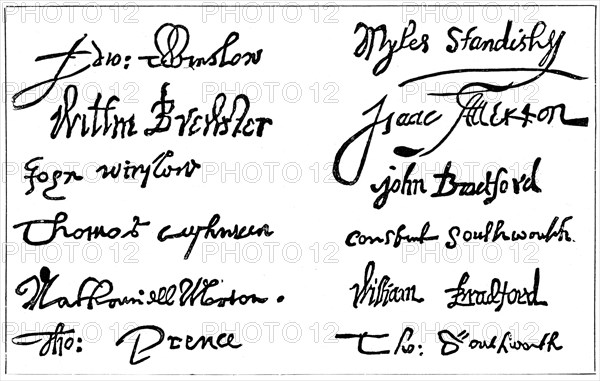 Edw: Winslow
Willm Brewster
John Winslow
Thomas Cushman
Nathaniell Morton.
Tho: Prence
Myles Standish
Isaac Allerton
John Bradford
Constant Southworth.
William Bradford
Tho: Southworth